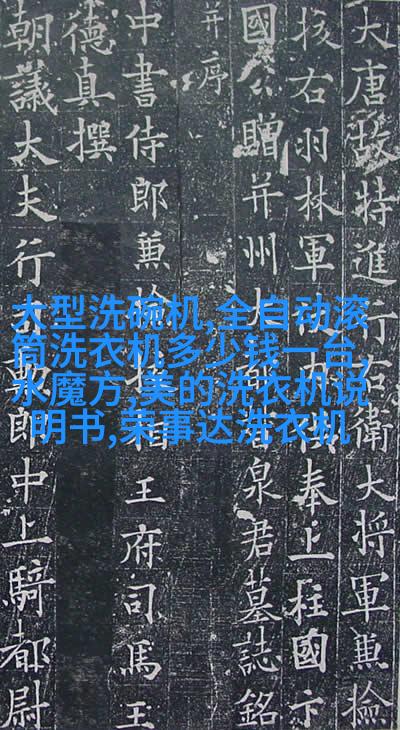 大唐故特進行右衛大將軍兼撿
挍右羽林軍奉上柱國卞
國公贈并州大都督泉君墓誌銘
并序
中書侍郎兼撿相王府司馬王
德真撰
朝議大夫行勳郎中上騎都尉
大型洗碗机,全自动滚
筒洗衣机多少钱一台,
水魔方,美的洗衣机说
明书,荣事达洗衣机